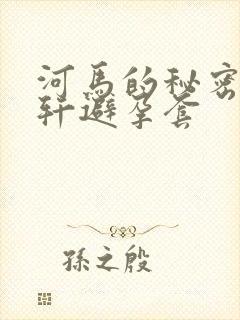 河馬的秘密
軒避孕套
孫之殷